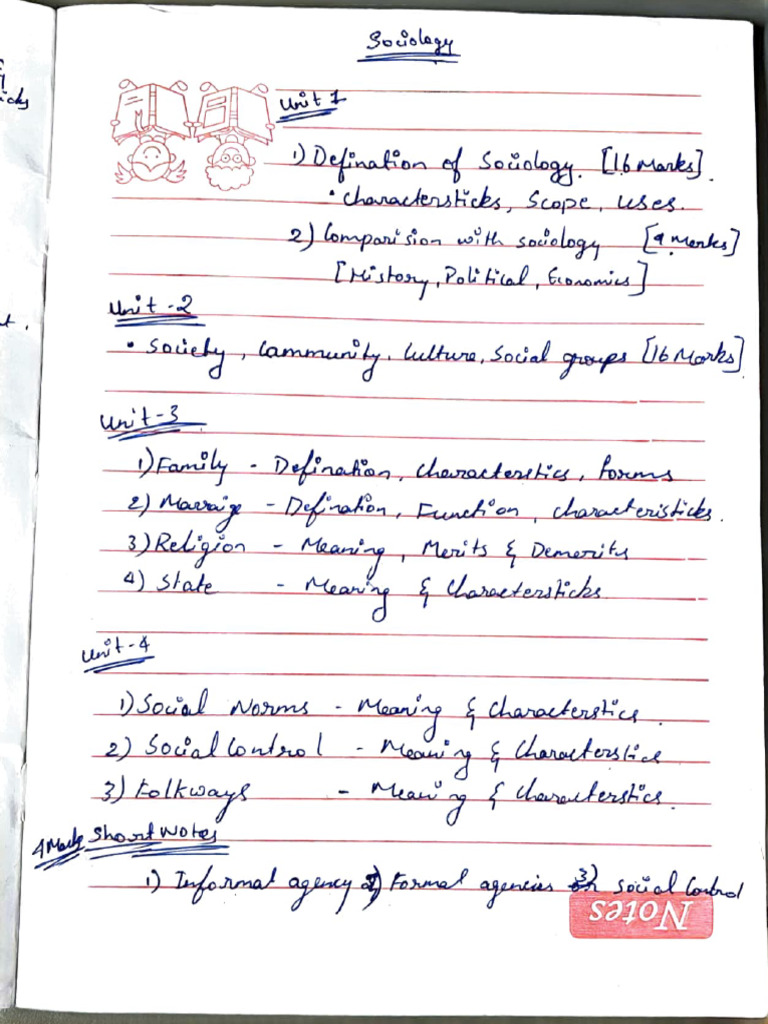 Sociology
Unit 1
1) Defination of Sociology. [16 Marks].
• charactersticks, Scope, uses.
2) Comparision with sociology [4 Marks]
[History, Political, Economics]
Unit-2
• Society, Community, Culture, Social groups [16 Marks]
Unit-3
1) Family - Defination, characterstics, forms
2) Marraige - Defination, Function, characteristicks.
3) Religion - Meaning, Merits & Demerits
4) State - Meaning & Characterstics
Unit-4
1) Social Norms - Meaning & Characterstics.
2) Social Control - Meaning & Characterstics
3) Folkways - Meaning & Characterstics.
4 Marks Short Notes
1) Informal agency 2) Formal agencies 3) social Control
Notes